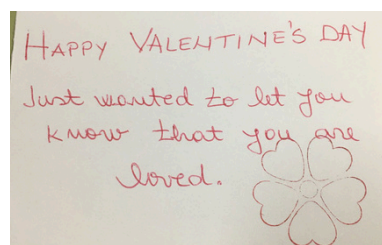 HAPPY VALENTINE'S DAY
Just wanted to let you
know that you are
loved.